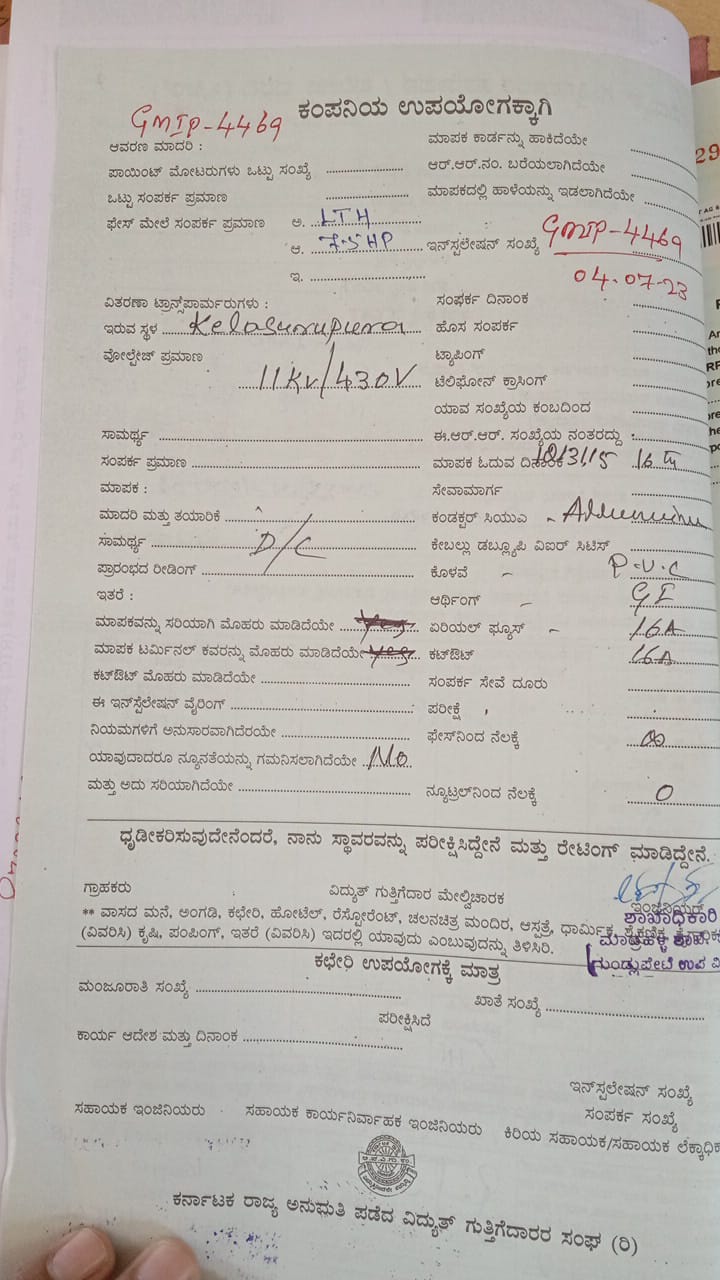 ಕಂಪನಿಯ ಉಪಯೋಗಕ್ಕಾಗಿ
GMIP-4469
ಆವರಣ ಮಾದರಿ :
ಮಾಪಕ ಕಾರ್ಡನ್ನು ಹಾಕಿದೆಯೇ
ಪಾಯಿಂಟ್ ಮೋಟರುಗಳು ಒಟ್ಟು ಸಂಖ್ಯೆ
ಆರ್.ಆರ್.ನಂ. ಬರೆಯಲಾಗಿದೆಯೇ
ಒಟ್ಟು ಸಂಪರ್ಕ ಪ್ರಮಾಣ
ಮಾಪಕದಲ್ಲಿ ಹಾಳೆಯನ್ನು ಇಡಲಾಗಿದೆಯೇ
ಫೇಸ್ ಮೇಲೆ ಸಂಪರ್ಕ ಪ್ರಮಾಣ ಅ. LTH
ಆ. 7.5 HP ಇನ್‌ಸ್ಪಲೇಷನ್ ಸಂಖ್ಯೆ GMIP-4469
ಇ. 04.07.23
ವಿತರಣಾ ಟ್ರಾನ್ಸ್‌ಪಾರ್ಮರುಗಳು :
ಸಂಪರ್ಕ ದಿನಾಂಕ
ಇರುವ ಸ್ಥಳ Kelasurupura
ಹೊಸ ಸಂಪರ್ಕ
ವೋಲ್ಟೇಜ್ ಪ್ರಮಾಣ
ಟ್ಯಾಪಿಂಗ್
11KV/430V ಟೆಲಿಫೋನ್ ಕ್ರಾಸಿಂಗ್
ಯಾವ ಸಂಖ್ಯೆಯ ಕಂಬದಿಂದ
ಸಾಮರ್ಥ್ಯ
ಈ.ಆರ್.ಆರ್. ಸಂಖ್ಯೆಯ ನಂತರದ್ದು :
ಸಂಪರ್ಕ ಪ್ರಮಾಣ
ಮಾಪಕ ಓದುವ ದಿನಾಂಕ
ಮಾಪಕ :
ಸೇವಾಮಾರ್ಗ
ಮಾದರಿ ಮತ್ತು ತಯಾರಿಕೆ
ಕಂಡಕ್ಟರ್ ಸಿಯುಎ
ಸಾಮರ್ಥ್ಯ D/C
ಕೇಬಲ್ಲು ಡಬ್ಲ್ಯೂಪಿ ವಿಐರ್ ಸಿಟಿಸ್
ಪ್ರಾರಂಭದ ರೀಡಿಂಗ್
ಕೊಳವೆ P.V.C
ಇತರೆ :
ಆರ್ಥಿಂಗ್ GI
ಮಾಪಕವನ್ನು ಸರಿಯಾಗಿ ಮೊಹರು ಮಾಡಿದೆಯೇ yes
ಏರಿಯಲ್ ಫ್ಯೂಸ್ 16A
ಮಾಪಕ ಟರ್ಮಿನಲ್ ಕವರನ್ನು ಮೊಹರು ಮಾಡಿದೆಯೇ yes
ಕಟ್‌ಔಟ್ 16A
ಕಟ್‌ಔಟ್ ಮೊಹರು ಮಾಡಿದೆಯೇ
ಸಂಪರ್ಕ ಸೇವೆ ದೂರು
ಈ ಇನ್‌ಸ್ಪೆಲೇಷನ್ ವೈರಿಂಗ್
ಪರೀಕ್ಷೆ
ನಿಯಮಗಳಿಗೆ ಅನುಸಾರವಾಗಿದೆರಯೇ
ಫೇಸ್‌ನಿಂದ ನೆಲಕ್ಕೆ
ಯಾವುದಾದರೂ ನ್ಯೂನತೆಯನ್ನು ಗಮನಿಸಲಾಗಿದೆಯೇ No
ಮತ್ತು ಅದು ಸರಿಯಾಗಿದೆಯೇ
ನ್ಯೂಟ್ರಲ್‌ನಿಂದ ನೆಲಕ್ಕೆ 0
ಧೃಡೀಕರಿಸುವುದೇನೆಂದರೆ, ನಾನು ಸ್ಥಾವರವನ್ನು ಪರೀಕ್ಷಿಸಿದ್ದೇನೆ ಮತ್ತು ರೇಟಿಂಗ್ ಮಾಡಿದ್ದೇನೆ.
ಗ್ರಾಹಕರು ವಿದ್ಯುತ್ ಗುತ್ತಿಗೆದಾರ ಮೇಲ್ವಿಚಾರಕ ಇಂಜಿನಿಯರ್
ಶಾಖಾಧಿಕಾರಿ
** ವಾಸದ ಮನೆ, ಅಂಗಡಿ, ಕಛೇರಿ, ಹೋಟೆಲ್, ರೆಸ್ಟೋರೆಂಟ್, ಚಲನಚಿತ್ರ ಮಂದಿರ, ಆಸ್ಪತ್ರೆ, ಧಾರ್ಮಿಕ, ಶೈಕ್ಷಣಿಕ,
(ವಿವರಿಸಿ) ಕೃಷಿ, ಪಂಪಿಂಗ್, ಇತರೆ (ವಿವರಿಸಿ) ಇದರಲ್ಲಿ ಯಾವುದು ಎಂಬುವುದನ್ನು ತಿಳಿಸಿರಿ.
ಗುಂಡ್ಲುಪೇಟೆ ಉಪ ವಿ
ಕಛೇರಿ ಉಪಯೋಗಕ್ಕೆ ಮಾತ್ರ
ಮಂಜೂರಾತಿ ಸಂಖ್ಯೆ
ಖಾತೆ ಸಂಖ್ಯೆ
ಪರೀಕ್ಷಿಸಿದೆ
ಕಾರ್ಯ ಆದೇಶ ಮತ್ತು ದಿನಾಂಕ
ಇನ್‌ಸ್ಪಲೇಷನ್ ಸಂಖ್ಯೆ
ಸಂಪರ್ಕ ಸಂಖ್ಯೆ
ಸಹಾಯಕ ಇಂಜಿನಿಯರು ಸಹಾಯಕ ಕಾರ್ಯನಿರ್ವಾಹಕ ಇಂಜಿನಿಯರು ಕಿರಿಯ ಸಹಾಯಕ/ಸಹಾಯಕ ಲೆಕ್ಕಾಧಿಕ
ಕರ್ನಾಟಕ ರಾಜ್ಯ ಅನುಮತಿ ಪಡೆದ ವಿದ್ಯುತ್ ಗುತ್ತಿಗೆದಾರರ ಸಂಘ (ರಿ)